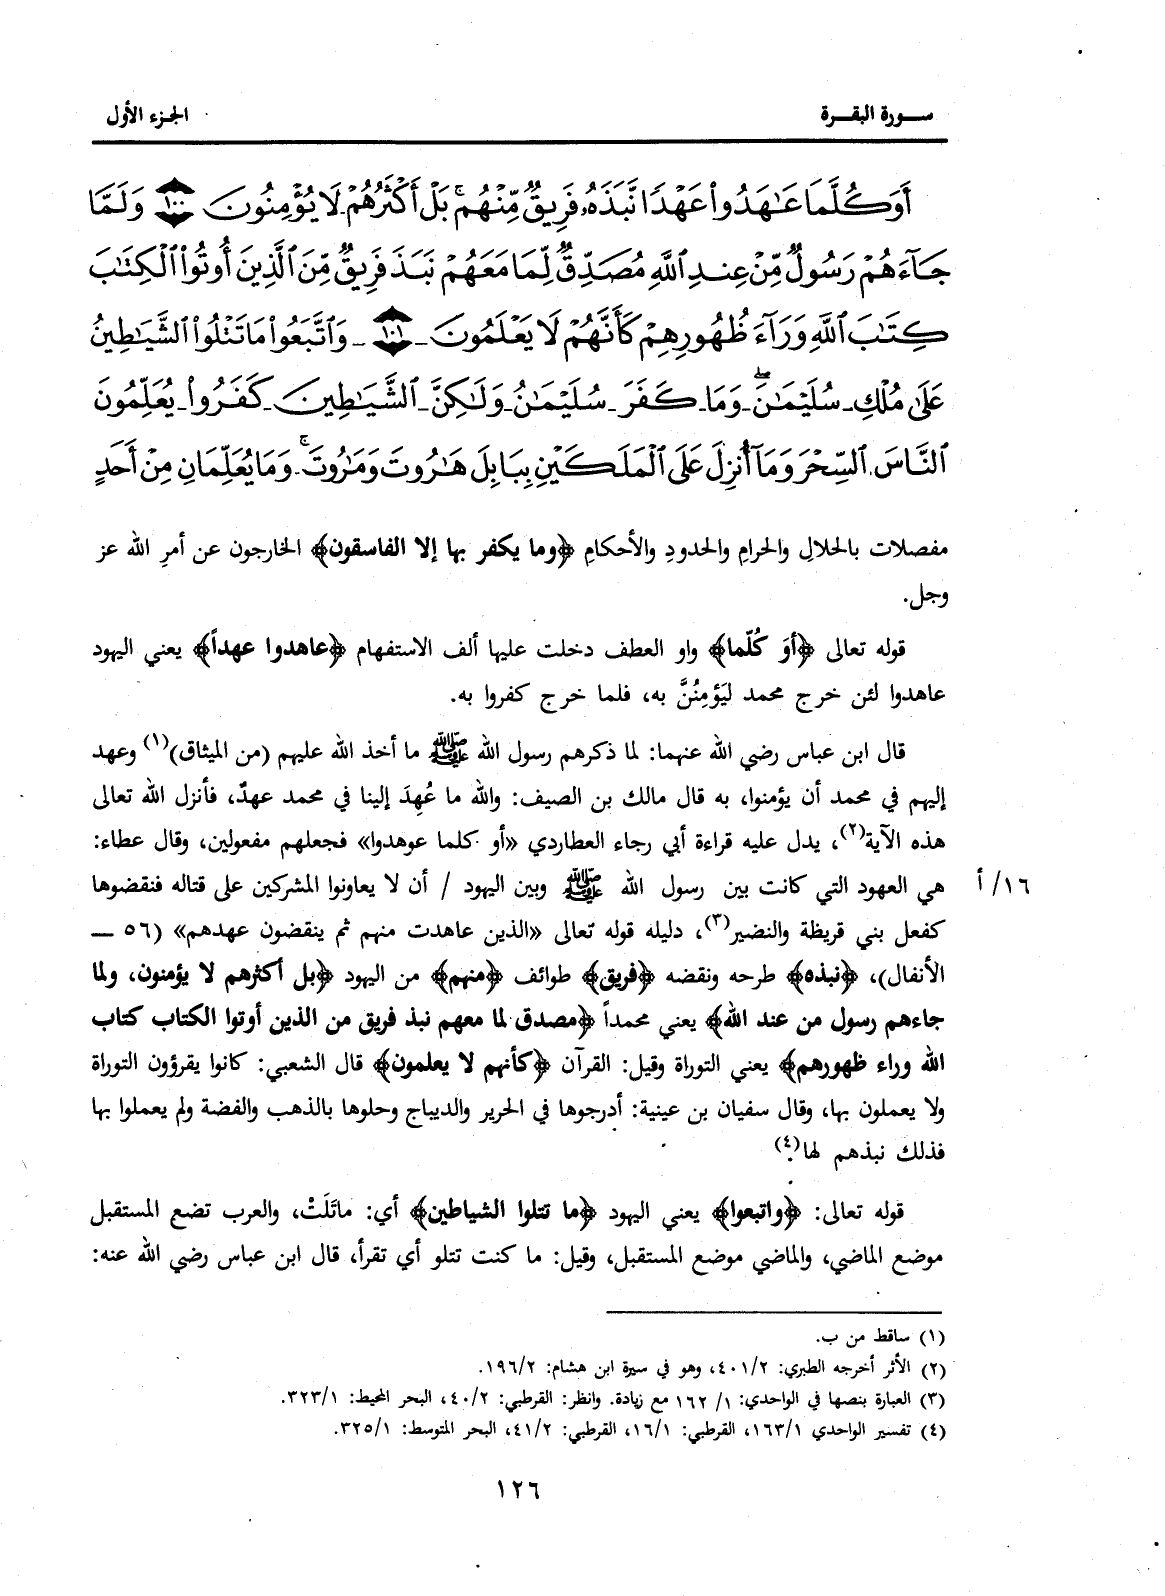 سورة البقرة
الجزء الأول
أَوَكُلَّمَا عَٰهَدُوا۟ عَهْدًا نَّبَذَهُۥ فَرِيقٌ مِّنْهُم ۚ بَلْ أَكْثَرُهُمْ لَا يُؤْمِنُونَ ١٠٠ وَلَمَّا
جَآءَهُمْ رَسُولٌ مِّنْ عِندِ ٱللَّهِ مُصَدِّقٌ لِّمَا مَعَهُمْ نَبَذَ فَرِيقٌ مِّنَ ٱلَّذِينَ أُوتُوا۟ ٱلْكِتَٰبَ
كِتَٰبَ ٱللَّهِ وَرَآءَ ظُهُورِهِمْ كَأَنَّهُمْ لَا يَعْلَمُونَ ١٠١ وَٱتَّبَعُوا۟ مَا تَتْلُوا۟ ٱلشَّيَٰطِينُ
عَلَىٰ مُلْكِ سُلَيْمَٰنَ ۖ وَمَا كَفَرَ سُلَيْمَٰنُ وَلَٰكِنَّ ٱلشَّيَٰطِينَ كَفَرُوا۟ يُعَلِّمُونَ
ٱلنَّاسَ ٱلسِّحْرَ وَمَآ أُنزِلَ عَلَى ٱلْمَلَكَيْنِ بِبَابِلَ هَٰرُوتَ وَمَٰرُوتَ ۚ وَمَا يُعَلِّمَانِ مِنْ أَحَدٍ
مفصلات بالحلالِ والحرامِ والحدودِ والأحكامِ ﴿وما يكفر بها إلا الفاسقون﴾ الخارجون عن أمرِ الله عز
وجل.
قوله تعالى ﴿أوَ كُلّما﴾ واو العطف دخلت عليها ألف الاستفهام ﴿عاهدوا عهداً﴾ يعني اليهود
عاهدوا لئن خرج محمد ليَؤمِنُنَّ به، فلما خرج كفروا به.
قال ابن عباس رضي الله عنهما: لما ذكرهم رسول الله ﷺ ما أخذ الله عليهم (من الميثاق)(١) وعهد
إليهم في محمد أن يؤمنوا، به قال مالك بن الصيف: والله ما عُهِدَ إلينا في محمد عهدٌ، فأنزل الله تعالى
هذه الآية(٢)، يدل عليه قراءة أبي رجاء العطاردي «أو كلما عوهدوا» فجعلهم مفعولين، وقال عطاء:
هي العهود التي كانت بين رسول الله ﷺ وبين اليهود / أن لا يعاونوا المشركين على قتاله فنقضوها
١٦/ أ
كفعل بني قريظة والنضير(٣)، دليله قوله تعالى «الذين عاهدت منهم ثم ينقضون عهدهم» (٥٦ ــ
الأنفال)، ﴿نبذه﴾ طرحه ونقضه ﴿فريق﴾ طوائف ﴿منهم﴾ من اليهود ﴿بل أكثرهم لا يؤمنون، ولما
جاءهم رسول من عند الله﴾ يعني محمداً ﴿مصدق لما معهم نبذ فريق من الذين أوتوا الكتاب كتاب
الله وراء ظهورهم﴾ يعني التوراة وقيل: القرآن ﴿كأنهم لا يعلمون﴾ قال الشعبي: كانوا يقرؤون التوراة
ولا يعملون بها، وقال سفيان بن عينية: أدرجوها في الحرير والديباج وحلوها بالذهب والفضة ولم يعملوا بها
فذلك نبذهم لها(٤).
قوله تعالى: ﴿واتبعوا﴾ يعني اليهود ﴿ما تتلوا الشياطين﴾ أي: ماتَلَتْ، والعرب تضع المستقبل
موضع الماضي، والماضي موضع المستقبل، وقيل: ما كنت تتلو أي تقرأ، قال ابن عباس رضي الله عنه:
(١) ساقط من ب.
(٢) الأثر أخرجه الطبري: ٤٠١/٢، وهو في سيرة ابن هشام: ١٩٦/٢.
(٣) العبارة بنصها في الواحدي: ١/ ١٦٢ مع زيادة. وانظر: القرطبي: ٤٠/٢، البحر المحيط: ٣٢٣/١.
(٤) تفسير الواحدي ١٦٣/١، القرطبي: ١٦/١، القرطبي: ٤١/٢، البحر المتوسط: ٣٢٥/١.
١٢٦